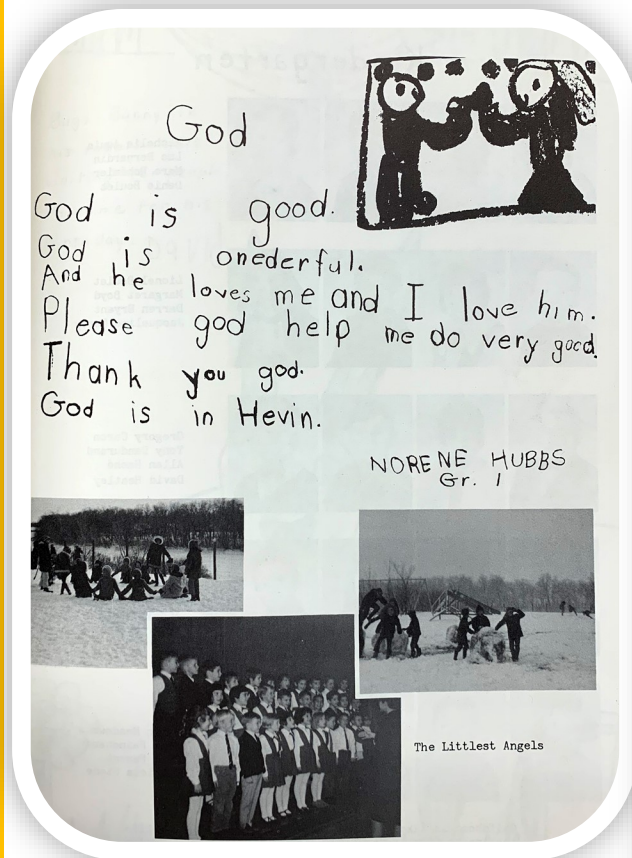 God
God is good.
God is onederful.
And he loves me and I love him.
Please god help me do very good.
Thank you god.
God is in Hevin.
NORENE HUBBS
Gr. 1
The Littlest Angels